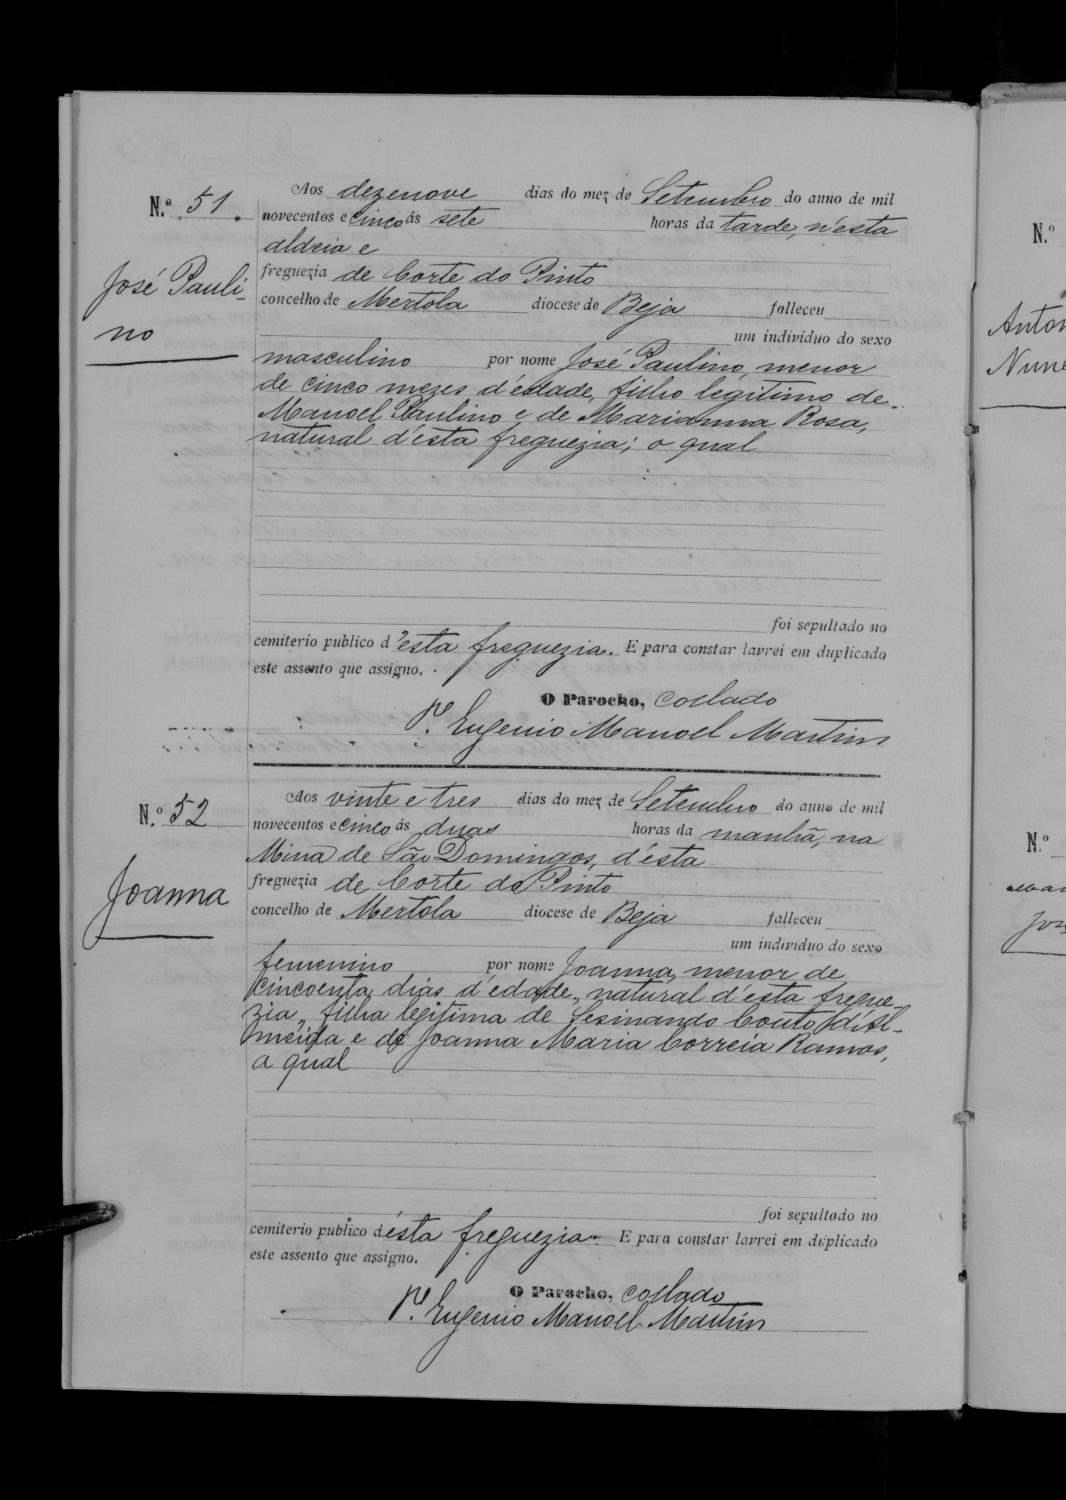 N.º 51.
José Pauli-
no
Aos dezenove dias do mez de Setembro do anno de mil
novecentos e cinco ás sete horas da tarde, n'esta
aldeia e
freguezia de Corte do Pinto
concelho de Mertola diocese de Beja falleceu
um individuo do sexo
masculino por nome José Paulino, menor
de cinco mezes d'edade, filho legitimo de
Manoel Paulino e de Marianna Rosa,
natural d'esta freguezia; o qual
foi sepultado no
cemiterio publico d'esta freguezia. E para constar lavrei em duplicado
este assento que assigno.
O Parocho, collado
P.e Eugenio Manoel Martins
N.º 52
Joanna
Aos vinte e tres dias do mez de Setembro do anno de mil
novecentos e cinco ás duas horas da manhã, na
Mina de São Domingos, d'esta
freguezia de Corte do Pinto
concelho de Mertola diocese de Beja falleceu
um individuo do sexo
femenino por nome Joanna, menor de
cincoenta dias d'edade, natural d'esta fregue-
zia, filha legitima de Sesinando Couto d'Al-
meida e de Joanna Maria Correia Ramos,
a qual
foi sepultado no
cemiterio publico d'ésta freguezia. E para constar lavrei em duplicado
este assento que assigno.
O Parocho, collado
P.e Eugenio Manoel Martins
N.º
Anton
Nune
N.º